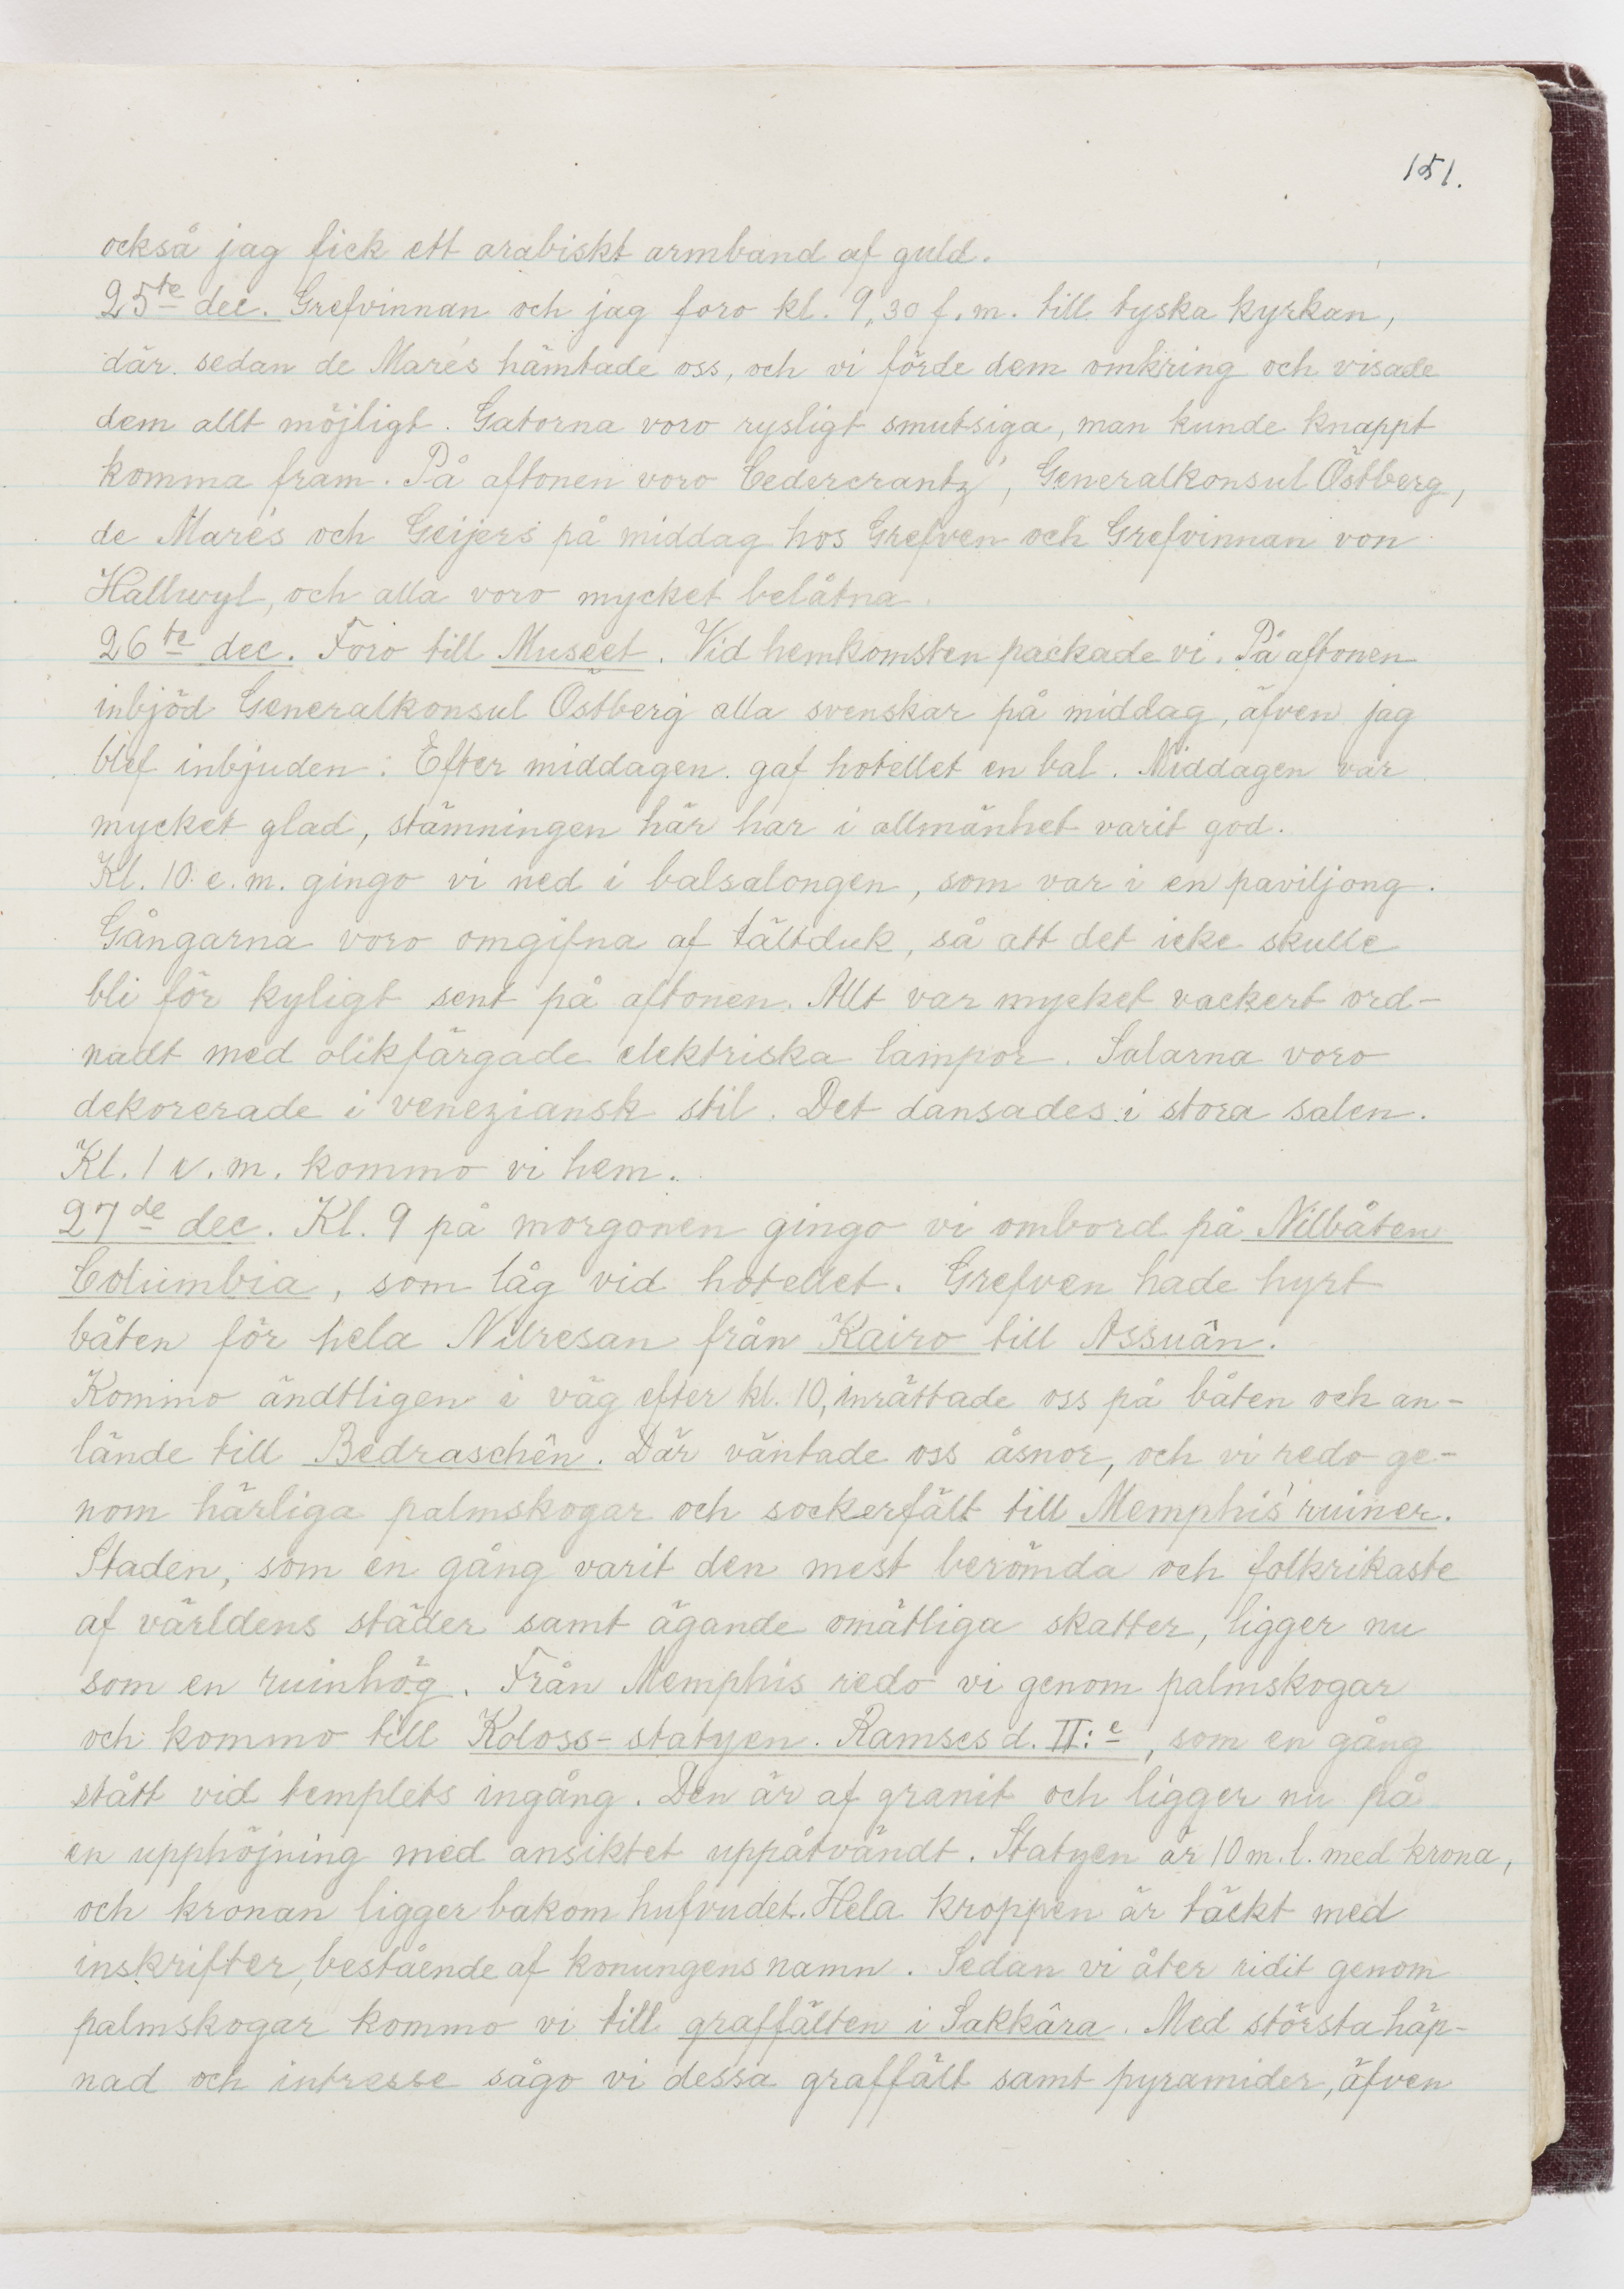 151.
också jag fick ett arabiskt armband af guld.
25te dec. Grefvinnan och jag foro kl. 9,30 f.m. till tyska kyrkan,
där sedan de Marés hämtade oss, och vi förde dem omkring och visade
dem allt möjligt. Gatorna voro rysligt smutsiga, man kunde knappt
komma fram. På aftonen voro Cedercrantz', Generalkonsul Östberg,
de Marés och Geijers på middag hos Grefven och Grefvinnan von
Hallwyl, och alla voro mycket belåtna.
26te dec. Foro till Museet. Vid hemkomsten packade vi. På aftonen
inbjöd Generalkonsul Östberg alla svenskar på middag, äfven jag
blef inbjuden. Efter middagen gaf hotellet en bal. Middagen var
mycket glad, stämningen här har i allmänhet varit god.
Kl. 10 e.m. gingo vi ned i balsalongen, som var i en paviljong.
Gångarna voro omgifna af tältduk, så att det icke skulle
bli för kyligt sent på aftonen. Allt var mycket vackert ord-
nadt med olikfärgade elektriska lampor. Salarna voro
dekorerade i veneziansk stil. Det dansades i stora salen.
Kl. 1 e.m. kommo vi hem.
27de dec. Kl. 9 på morgonen gingo vi ombord på Nilbåten
Columbia, som låg vid hotellet. Grefven hade hyrt
båten för hela Nilresan från Kairo till Assuân.
Kommo ändtligen i väg efter kl. 10, inrättade oss på båten och an-
lände till Bedraschên. Där väntade oss åsnor, och vi redo ge-
nom härliga palmskogar och sockerfält till Memphis' ruiner.
Staden, som en gång varit den mest berömda och folkrikaste
af världens städer samt ägande omätliga skatter, ligger nu
som en ruinhög. Från Memphis redo vi genom palmskogar
och kommo till Koloss-statyen. Ramses d. II:e, som en gång
stått vid templets ingång. Den är af granit och ligger nu på
en upphöjning med ansiktet uppåtvändt. Statyen är 10 m. l. med krona,
och kronan ligger bakom hufvudet. Hela kroppen är täckt med
inskrifter, bestående af konungens namn. Sedan vi åter ridit genom
palmskogar kommo vi till graffälten i Sakkâra. Med största häp-
nad och intresse sågo vi dessa graffält samt pyramider, äfven